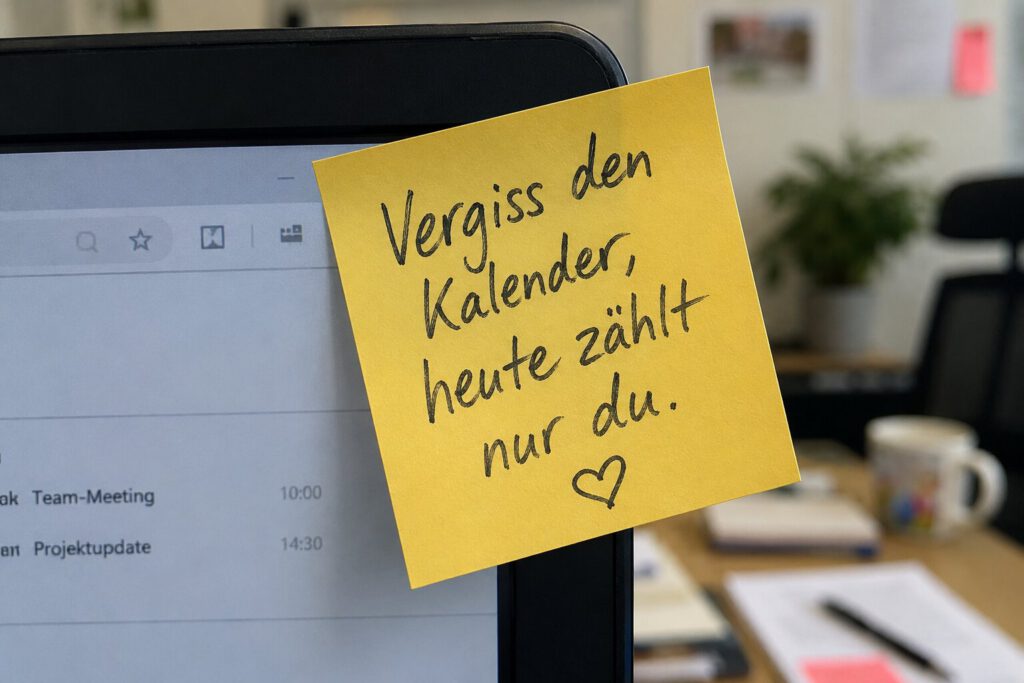 Vergiss den
Kalender,
heute zählt
nur du.
Team-Meeting 10:00
Projektupdate 14:30